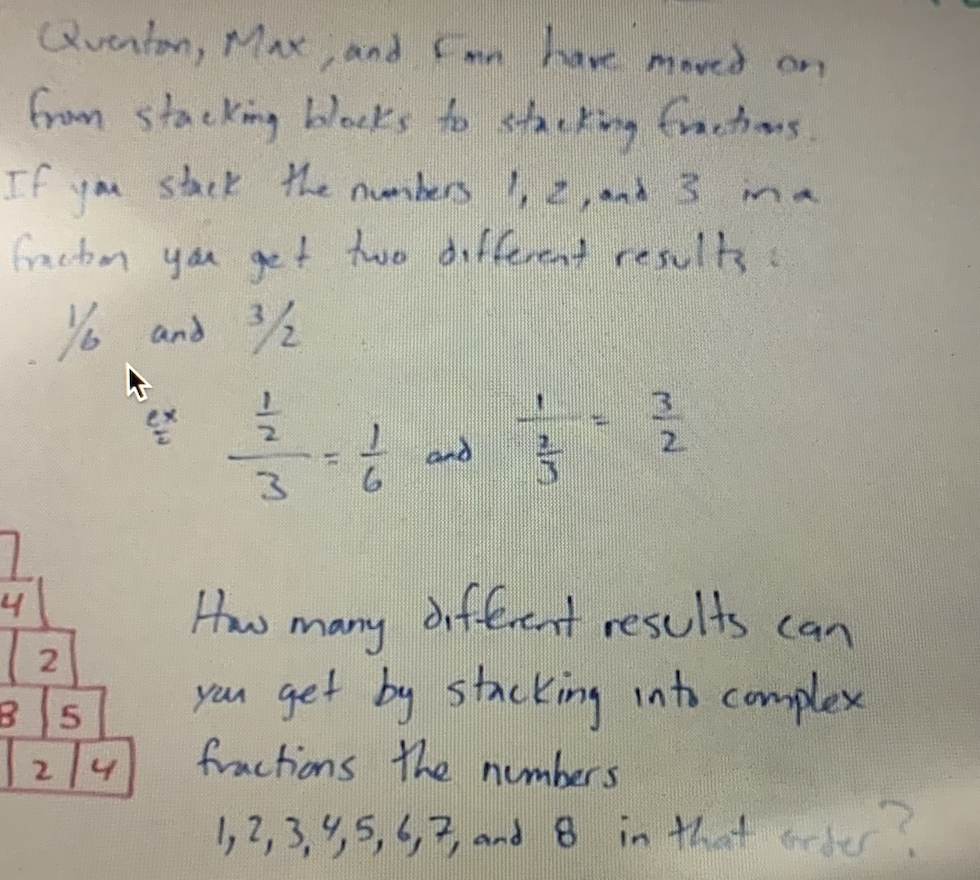 Quenton, Max, and have moved on
from stacking blocks to stacking fractions.
If you stack the numbers 1, 2, and 3 in a
fraction you get two different results:
1/6 and 3/2
ex (1/2)/3 = 1/6 and 1/(2/3) = 3/2
4
2
8 5
2 4
How many different results can
you get by stacking into complex
fractions the numbers
1, 2, 3, 4, 5, 6, 7, and 8 in that order?